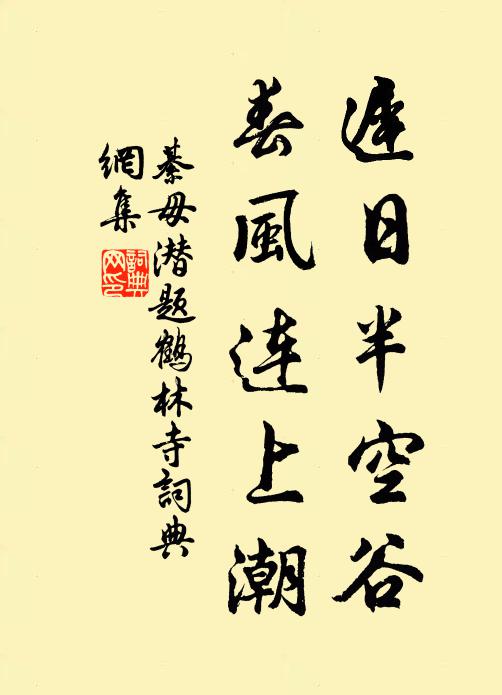 遲日半空谷
春風連上潮
綦毋潜题鶴林寺詞典
網集
詞典
网印